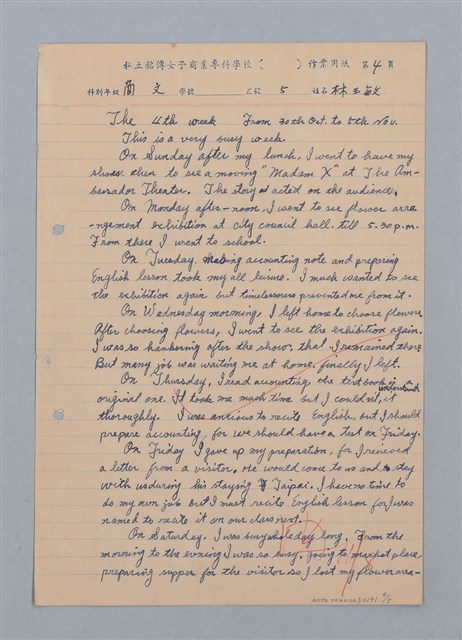 私立銘傳女子商業專科學校（　　　）作業用紙 第4頁
科別年級 商文 學號 座號 5 姓名 林玉敏
The 4th week From 30th Oct. to 5th Nov.
This is a very busy week.
On Sunday after my lunch, I went to have my
shoes then to see a moving "Madam X" at The Am-
bassador Theater. The story acted on the audience.
On Monday after-noon, I went to see flower arra-
ngement exhibition at city council hall. till 5.30 p.m.
From there I went to school.
On Tuesday, Making accounting note and preparing
English lesson took my all leisure. I much wanted to see
the exhibition again but timelessness prevented me from it.
On Wednesday morning, I left home to choose flowers
After choosing flowers, I went to see the exhibition again.
I was so hankering after the show, that I remained there
But many job was waiting me at home. finally I left.
On Thursday, I read accounting, the text book is
original one. It took me much time but I could sit, it understand
thoroughly. I was anxious to recite English, but I should
prepare accounting, for we should have a test on Friday.
On Friday I gave up my preparation, for I recieved
a letter from a visitor. He would come to us and to stay
with us during his staying Taipai. I have no time to
do my own job but I must recite English lesson for I was
named to recite it on our class next.
On Saturday. I was busy whole day long. From the
morning to the evening I was so busy, going to market place,
preparing supper for the visitor so I lost my flower arra-